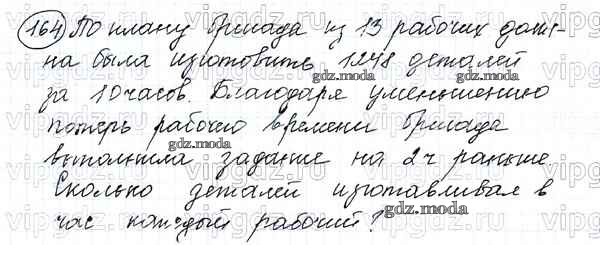 164 По плану бригада из 13 рабочих долж-
на была изготовить 1248 деталей
за 10 часов. Благодаря уменьшению
потерь рабочего времени бригада
выполнила задание на 2 ч раньше.
Сколько деталей изготавливал в
час каждый рабочий?
gdz.moda
gdz.moda
gdz.moda
gdz.moda
gdz.moda
vipgdz.ru